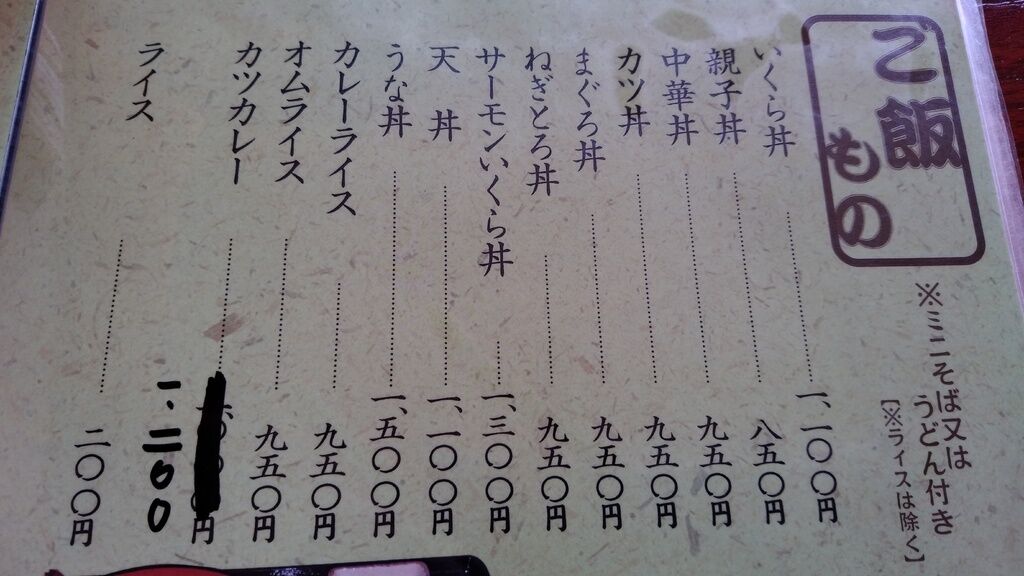 ご飯もの
※ミニそば又は
うどん付き
［※ライスは除く］
いくら丼 一、一〇〇円
親子丼 八五〇円
中華丼 九五〇円
カツ丼 九五〇円
まぐろ丼 九五〇円
ねぎとろ丼 九五〇円
サーモンいくら丼 一、三〇〇円
天丼 一、一〇〇円
うな丼 一、五〇〇円
カレーライス 九五〇円
オムライス 九五〇円
カツカレー 円
一.二00
ライス 二〇〇円